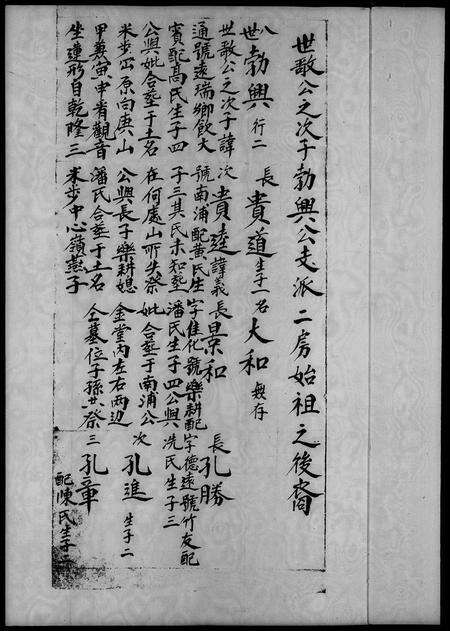 世敢公之次子勃興公支派二房始祖之後裔
八世勃興 行二
世敢公之次子諱
通號遠瑞鄉飲大
賓配髙氏生子四
公與妣合塟于土名
米步窑原向庚山
甲兼寅申看觀音
坐蓮形自乾隆三
長貴道 生子一名
次貴逵 諱義
號南浦配黃氏生
子三其氏未知塟
在何處山所步祭
公與長子樂耕媳
潘氏合塟于土名
米步中心嶺燕子
大和 無存
長景和
字佳化號樂耕配
潘氏生子四公與
妣合塟于南浦公
金堂內左右两边
仝墓位子孫廿祭
長孔勝
字德遠號竹友配
冼氏生子三
次孔進 生子二
三孔章
配陳氏生子